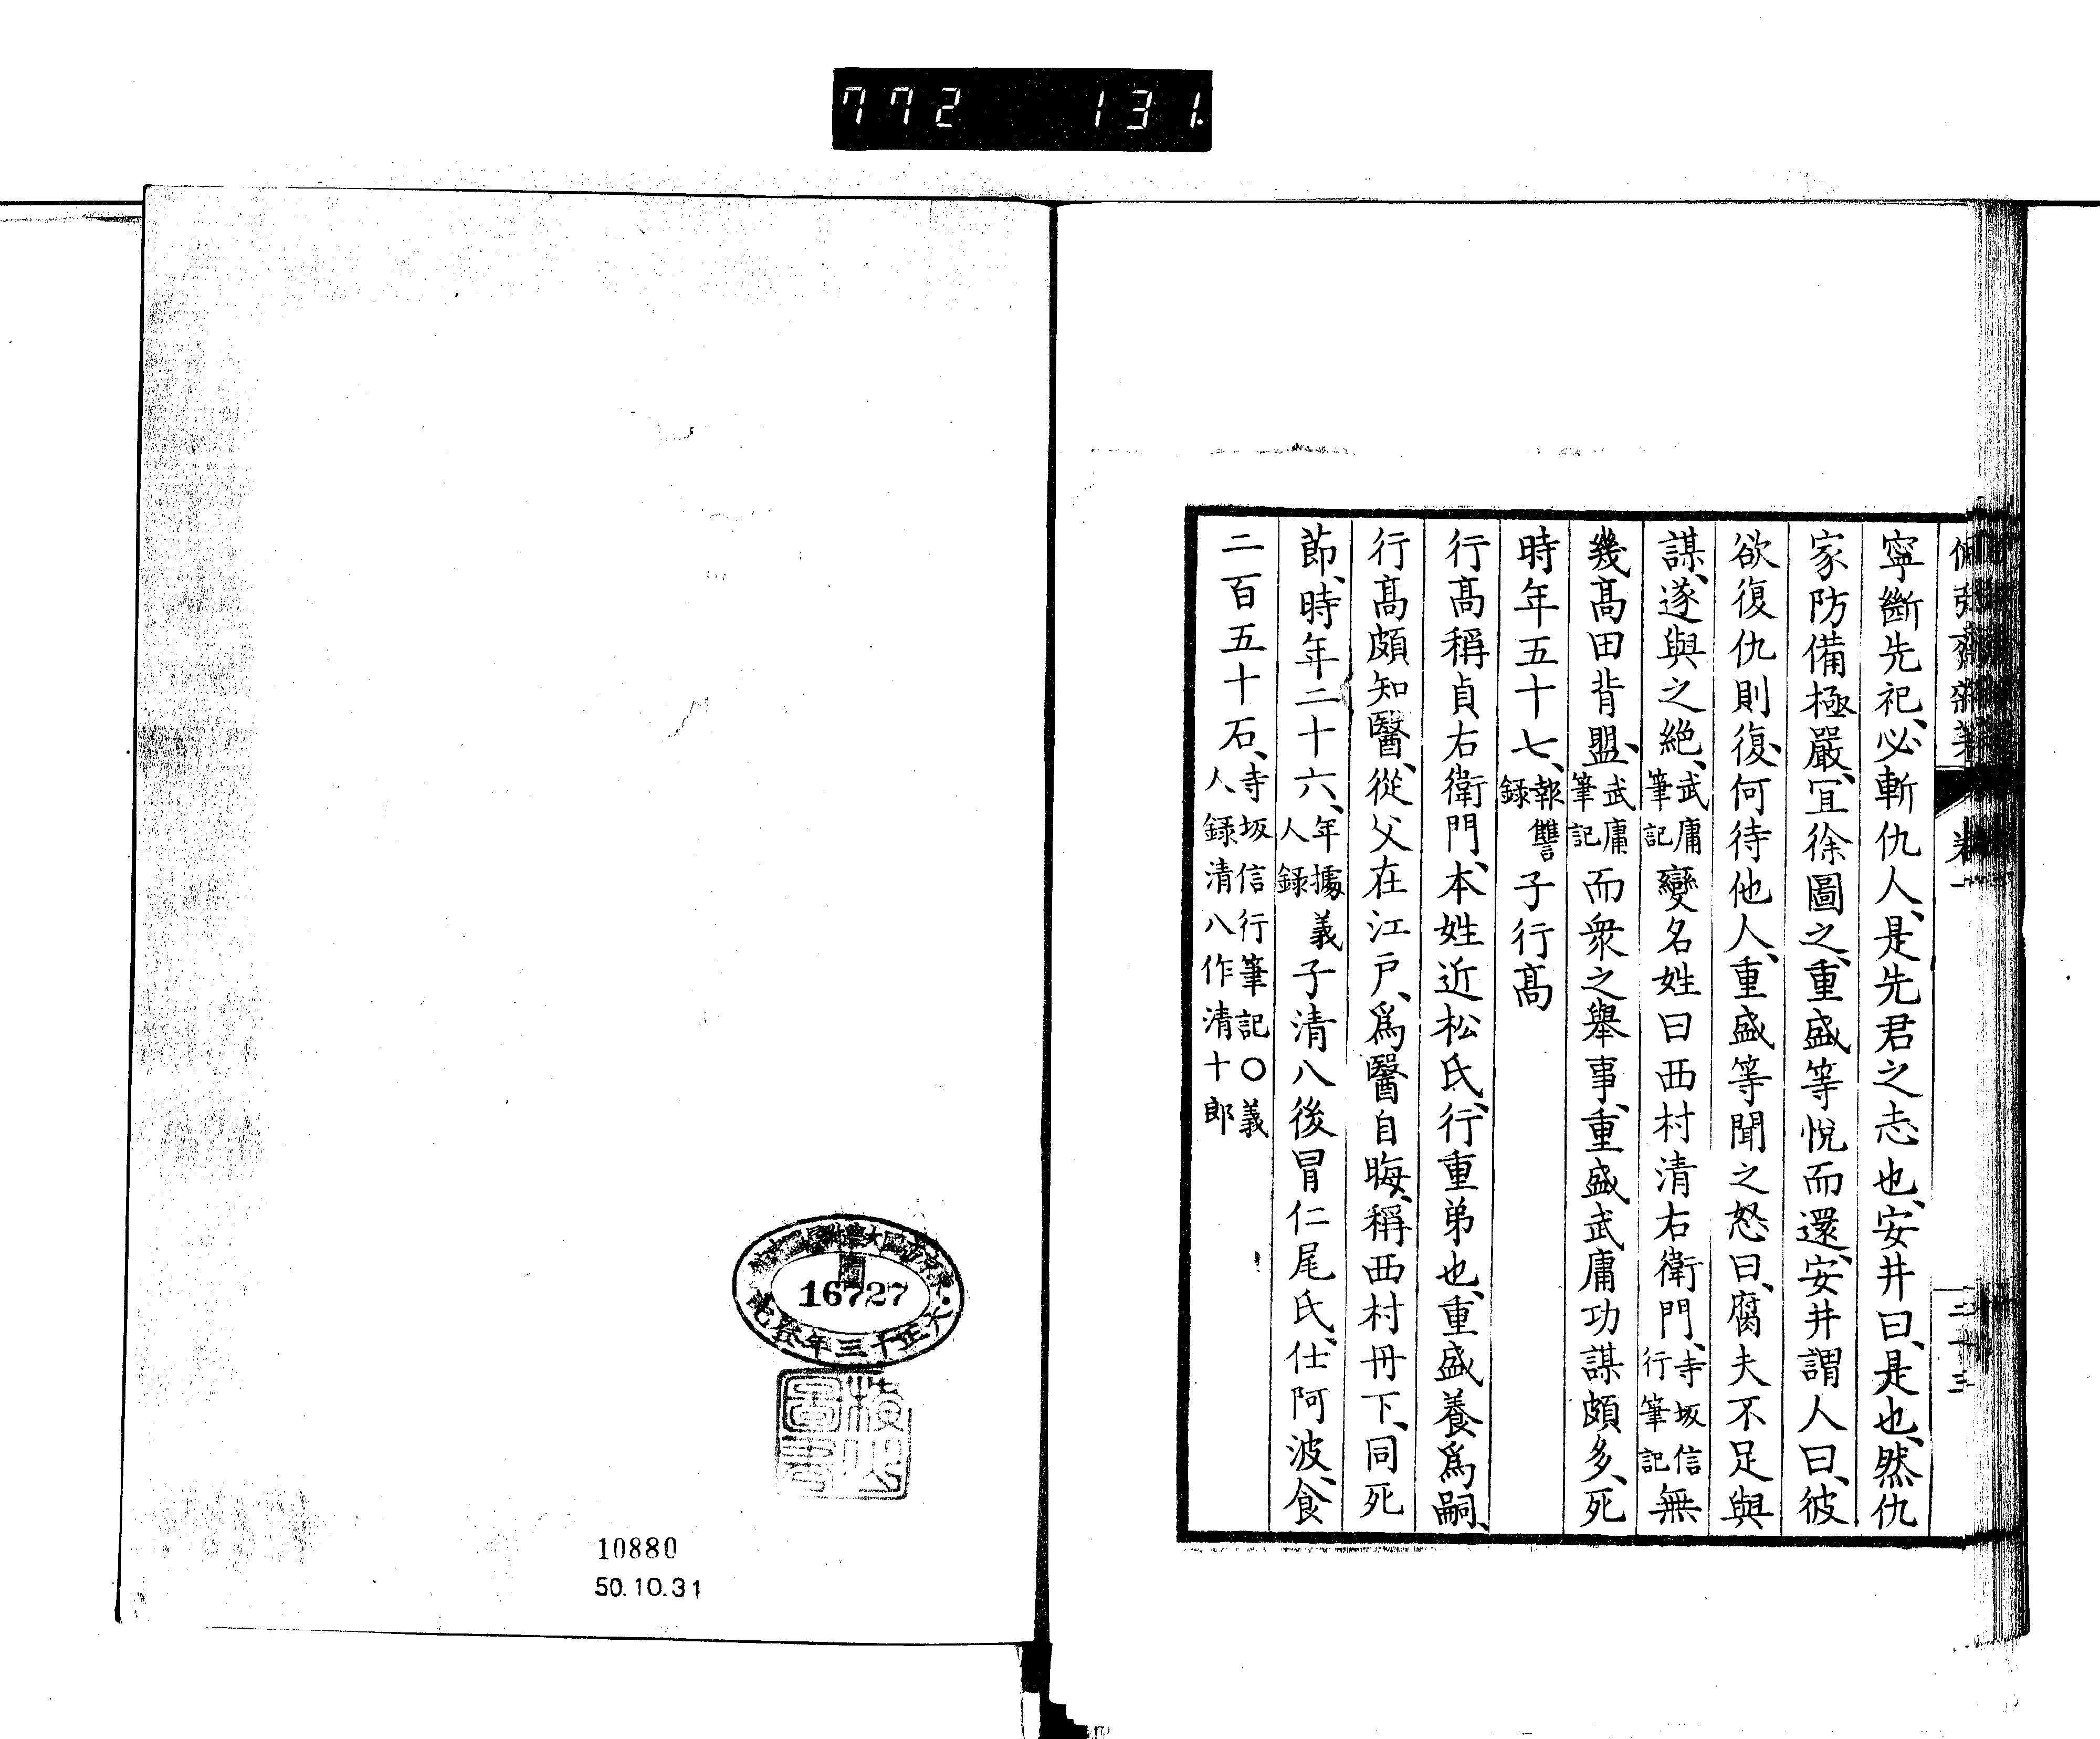 772 131.
寧斷先祀、必斬仇人、是先君之志也、安井曰、是也、然仇
家防備極嚴、宜徐圖之、重盛等悅而還、安井謂人曰、彼
欲復仇則復、何待他人、重盛等聞之怒曰、腐夫不足與
謀、遂與之絕、武庸筆記變名姓曰西村清右衛門、寺坂信行筆記無
幾高田背盟、武庸筆記而衆之舉事、重盛武庸功謀頗多、死
時年五十七、報讐録子行高
行高稱貞右衛門、本姓近松氏、行重弟也、重盛養爲嗣、
行高頗知醫、從父在江戸、爲醫自晦、稱西村丹下、同死
節、時年二十六、年據義人録子清八後冒仁尾氏、仕阿波、食
二百五十石、寺坂信行筆記○義人録清八作清十郎
16727
大正十三年
圖書
10880
50.10.31